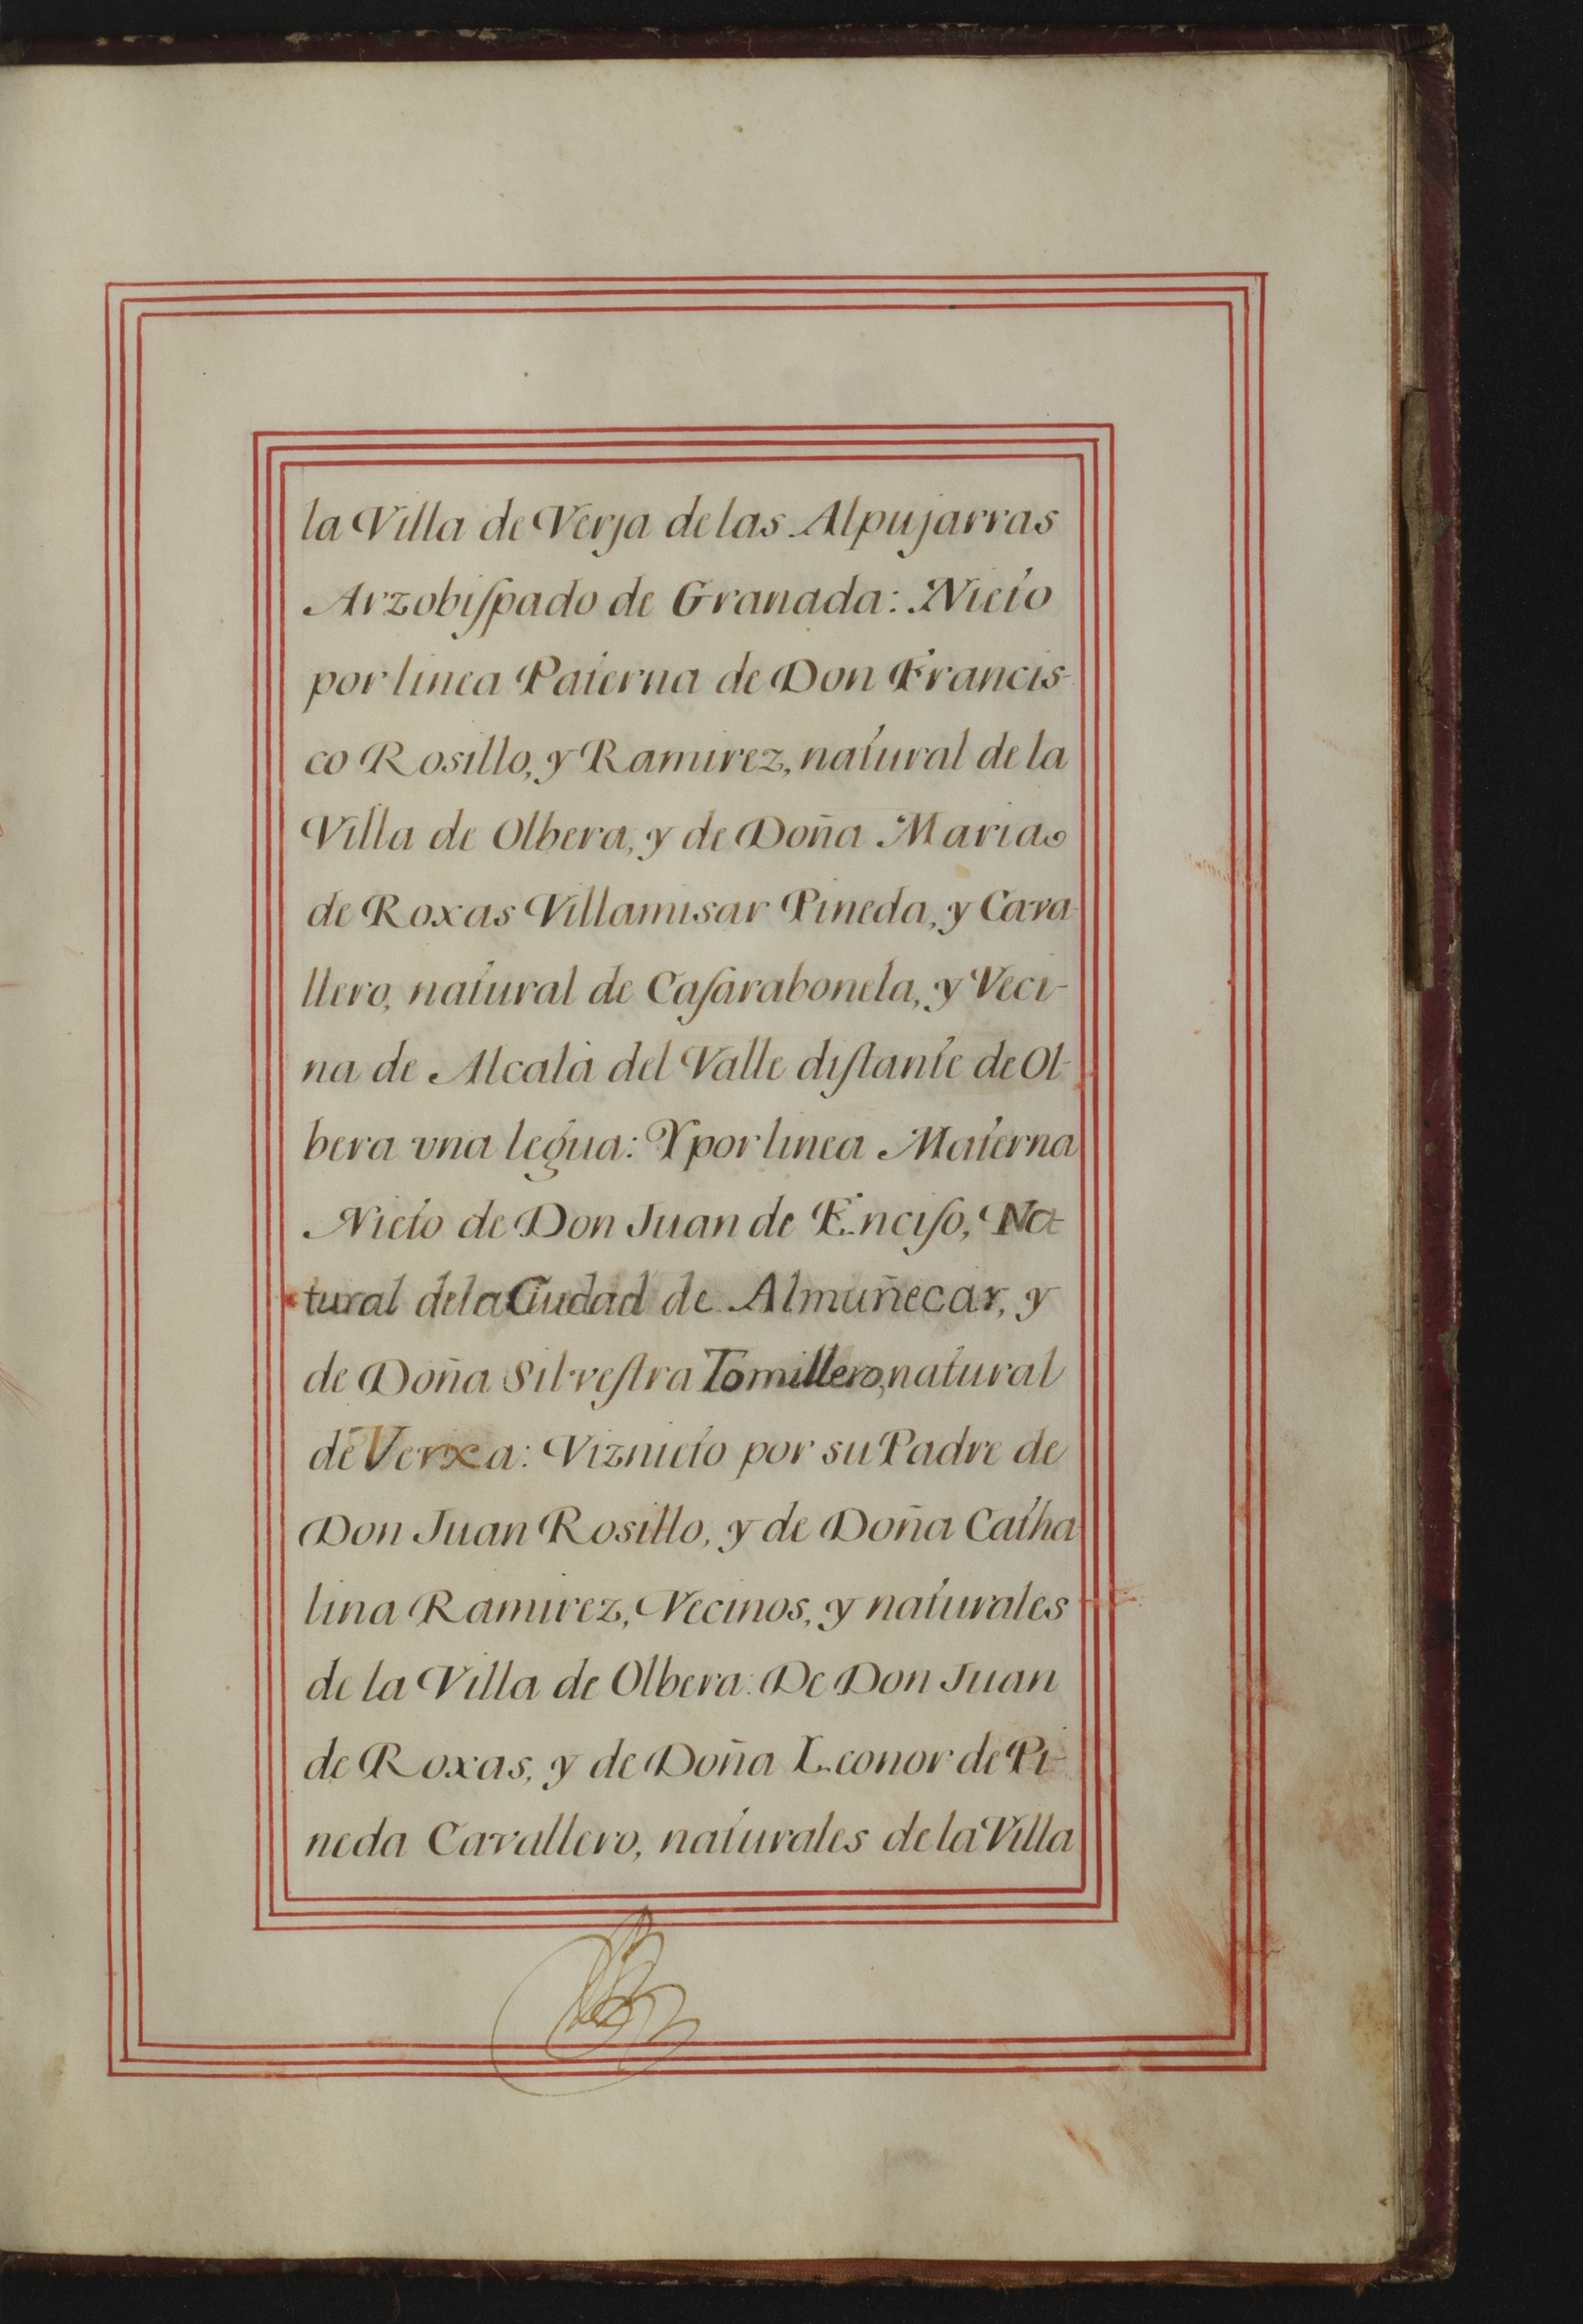 la Villa de Verja de las Alpujarras
Arzobiſpado de Granada: Nieto
por linea Paterna de Don Francis-
co Rosillo, y Ramirez, natural de la
Villa de Olbera, y de Doña Maria
de Roxas Villamisar Pineda, y Cava-
llero, natural de Caſarabonela, y Veci-
na de Alcalà del Valle diſtante de Ol-
bera vna legua: Y por linea Materna
Nieto de Don Juan de Enciſo, Na-
tural de la Ciudad de Almuñecar, y
de Doña Silveſtra Tomillero, natural
de Verxa: Viznieto por su Padre de
Don Juan Rosillo, y de Doña Catha
lina Ramirez, Vecinos, y naturales
de la Villa de Olbera: De Don Juan
de Roxas, y de Doña Leonor de Pi-
neda Cavallero, naturales de la Villa